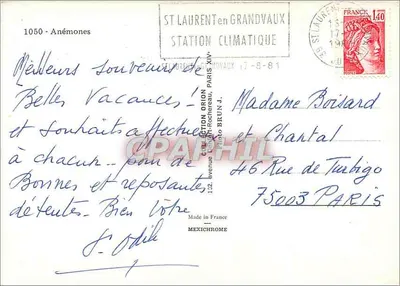 1050 - Anémones
ST LAURENT en GRANDVAUX
STATION CLIMATIQUE
17-8-81
FRANCE
1,40
39 ST LAURENT
Meilleurs souvenirs de
Belles Vacances!
et souhaits affectueux
à chacun - pour de
Bonnes et reposantes
détentes - Bien Vôtre
St Odile
COLLECTION ORION
132, avenue Rochereau, PARIS XIV
Photo BRUN J.
Madame Boisard
et Chantal
46 Rue de Turbigo
75003 PARIS
Made in France
MEXICHROME
CPAPHIL